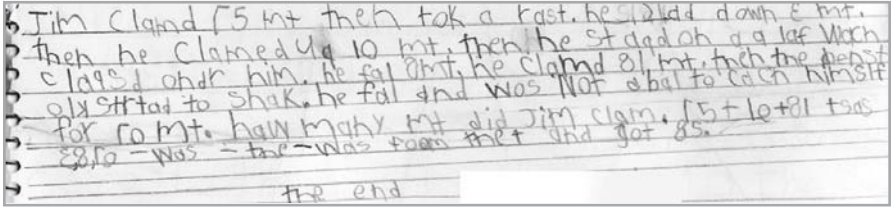 Jim Clamd 15 mt then tok a rast. he slidd down 3 mt.
then he Clamed up 10 mt. then he stddd on a laf Wach
clapsd ondr him. he fal 8mt. he clamd 81 mt. then the
Strtad to Shak. he fal and wos Not abal to cach himslf
for 10 mt. haw many mt did Jim clam. 15+10+81 +sas
3,8,10 - was - the - was from thet and got 85.
the end